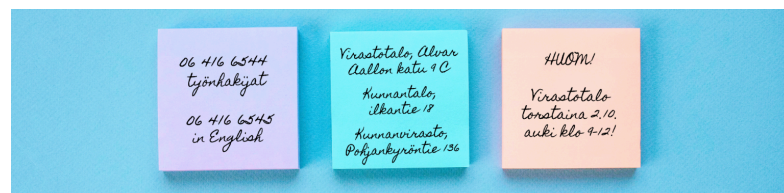 06 416 6544
työnhakijat
06 416 6545
in English
Virastotalo, Alvar
Aallon katu 9 C
Kunnantalo,
ilkantie 18
Kunnanvirasto,
Pohjankyröntie 136
HUOM!
Virastotalo
torstaina 2.10.
auki klo 9-12!